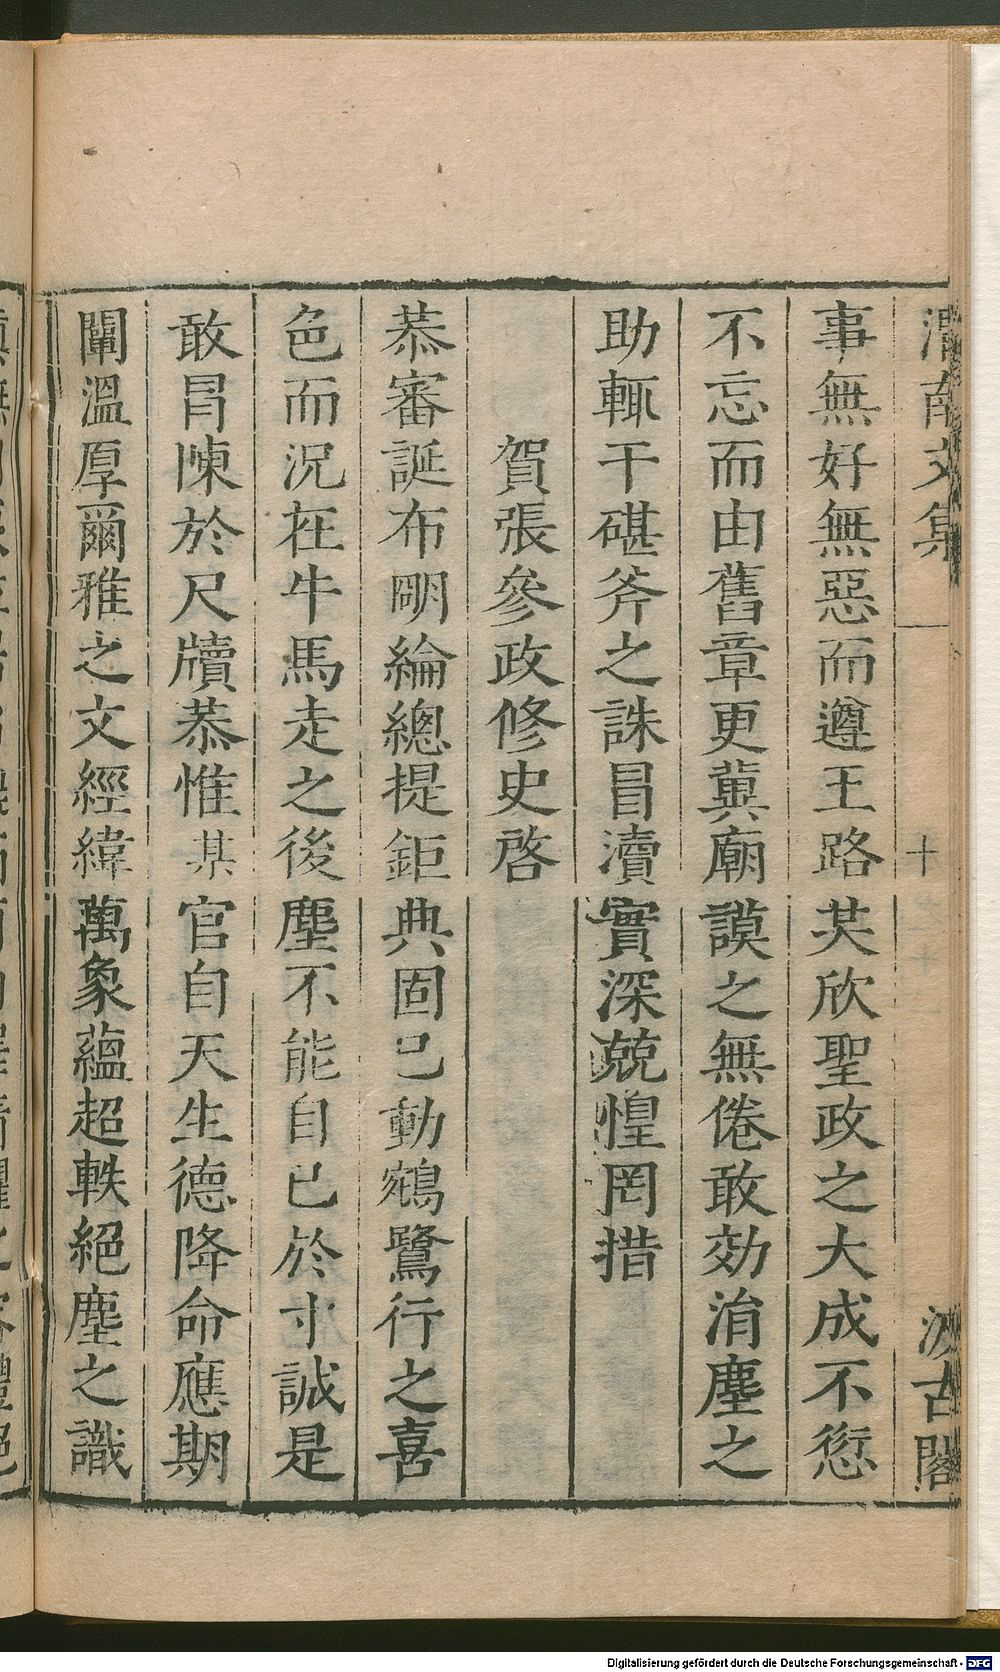 渭南文集
十
汲古閣
事無好無惡而遵王路芖欣聖政之大成不愆
不忘而由舊章更兾廟謨之無倦敢効涓塵之
助輒干碪斧之誅冒瀆實深兢惶罔措
賀張參政修史啓
恭審誕布明綸總提鉅典固已動鵷鷺行之喜
色而況在牛馬走之後塵不能自已於寸誠是
敢冐陳於尺牘恭惟某官自天生德降命應期
闡溫厚爾雅之文經緯萬象蘊超軼絕塵之識
Digitalisierung gefördert durch die Deutsche Forschungsgemeinschaft - DFG